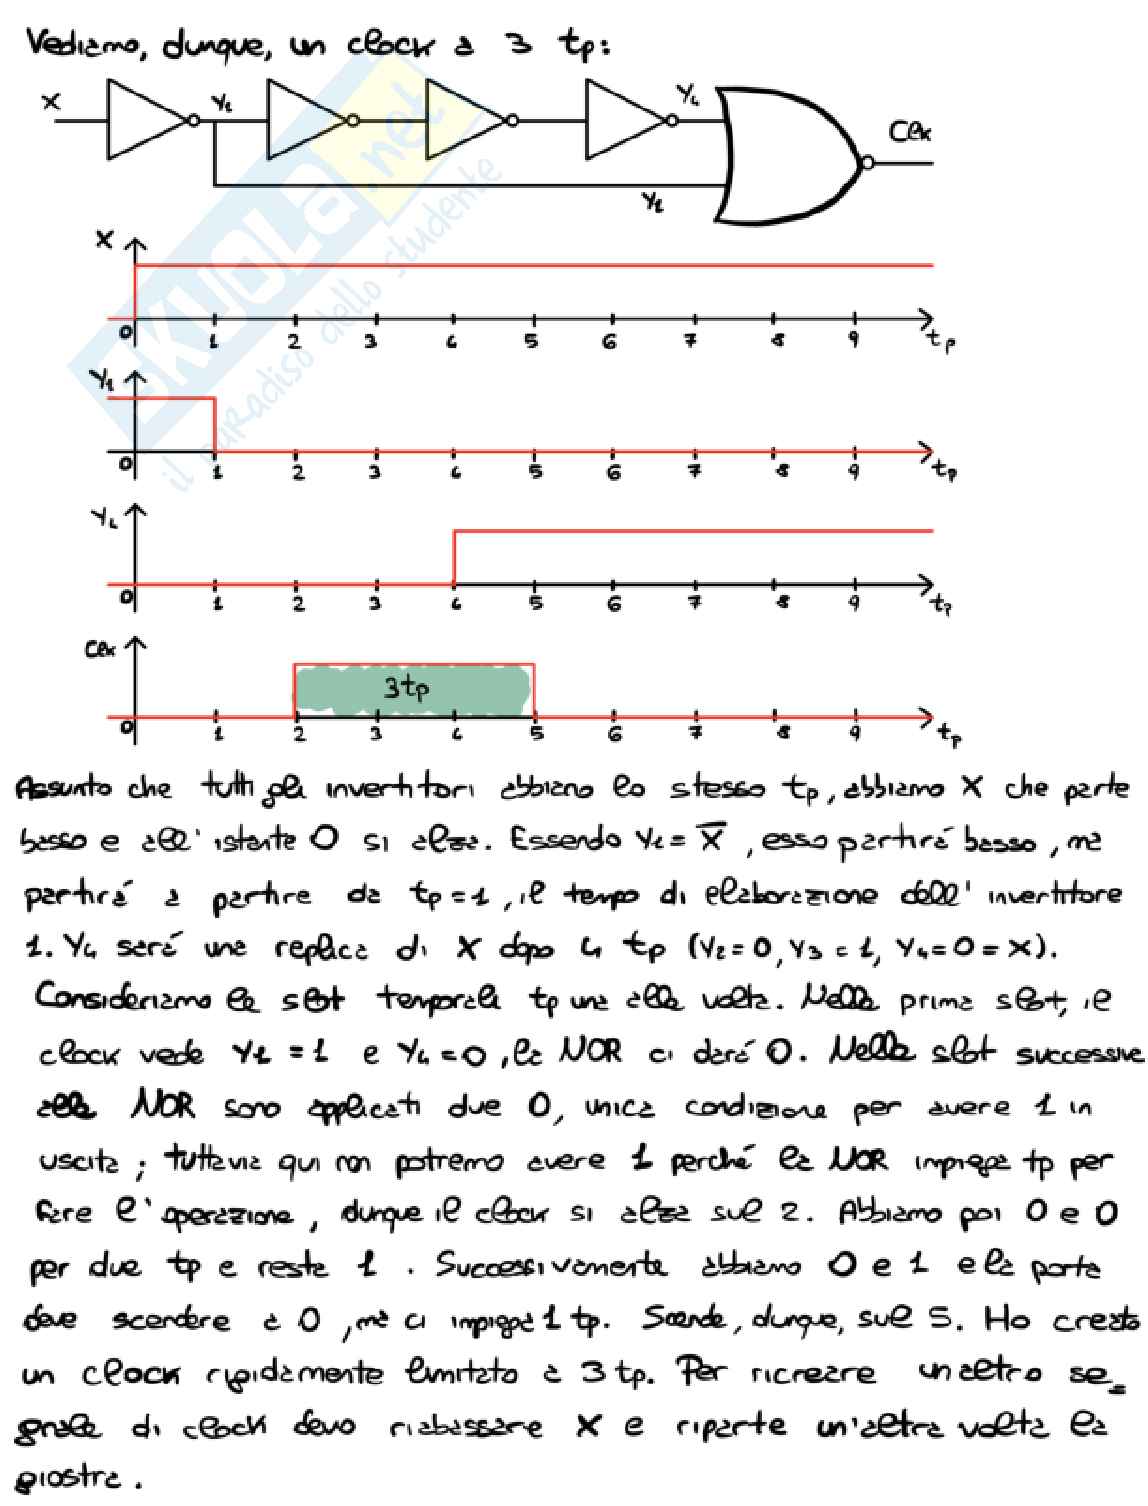 Vediamo, dunque, un clock a 3 tp:
X Y1 Y4 Clk
Y1
SKUOLA.net
il paradiso dello studente
X
0 1 2 3 4 5 6 7 8 9 tp
Y1
0 1 2 3 4 5 6 7 8 9 tp
Y4
0 1 2 3 4 5 6 7 8 9 tp
Clk
3tp
0 1 2 3 4 5 6 7 8 9 tp
Assunto che tutti gli invertitori abbiano lo stesso tp, abbiamo X che parte
basso e all'istante 0 si alza. Essendo Y1 = X̅, esso partirà basso, ma
partirà a partire da tp=1, il tempo di elaborazione dell'invertitore
1. Y4 sarà una replica di X dopo 4 tp (Y2=0, Y3=1, Y4=0=X).
Consideriamo le slot temporali tp una alla volta. Nella prima slot, il
clock vede Y1=1 e Y4=0, la NOR ci darà 0. Nella slot successiva
alla NOR sono applicati due 0, unica condizione per avere 1 in
uscita; tuttavia qui non potremo avere 1 perché la NOR impiega tp per
fare l'operazione, dunque il clock si alza sul 2. Abbiamo poi 0 e 0
per due tp e resta 1. Successivamente abbiamo 0 e 1 e la porta
deve scendere a 0, ma ci impiega 1 tp. Scende, dunque, sul 5. Ho creato
un clock rigidamente limitato a 3 tp. Per ricreare un altro se=
gnale di clock devo riabassare X e riparte un'altra volta la
giostra.